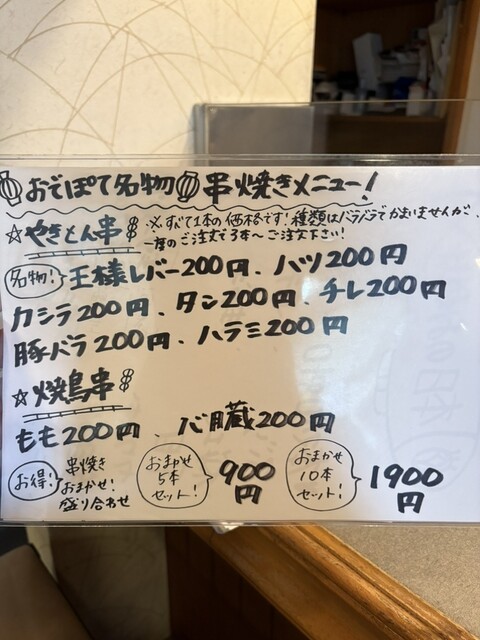 おぞぽて名物 串焼きメニュー!
☆やきとん串 ※すべて1本の価格です!種類はバラバラでかまいませんが、
一度のご注文で3本〜ご注文下さい!
名物! 王様レバー200円、ハツ200円
カシラ200円、タン200円、チレ200円
豚バラ200円、ハラミ200円
☆焼鳥串
もも200円、心臓200円
お得! 串焼きおまかせ!盛り合わせ
おまかせ5本セット! 900円
おまかせ10本セット! 1900円